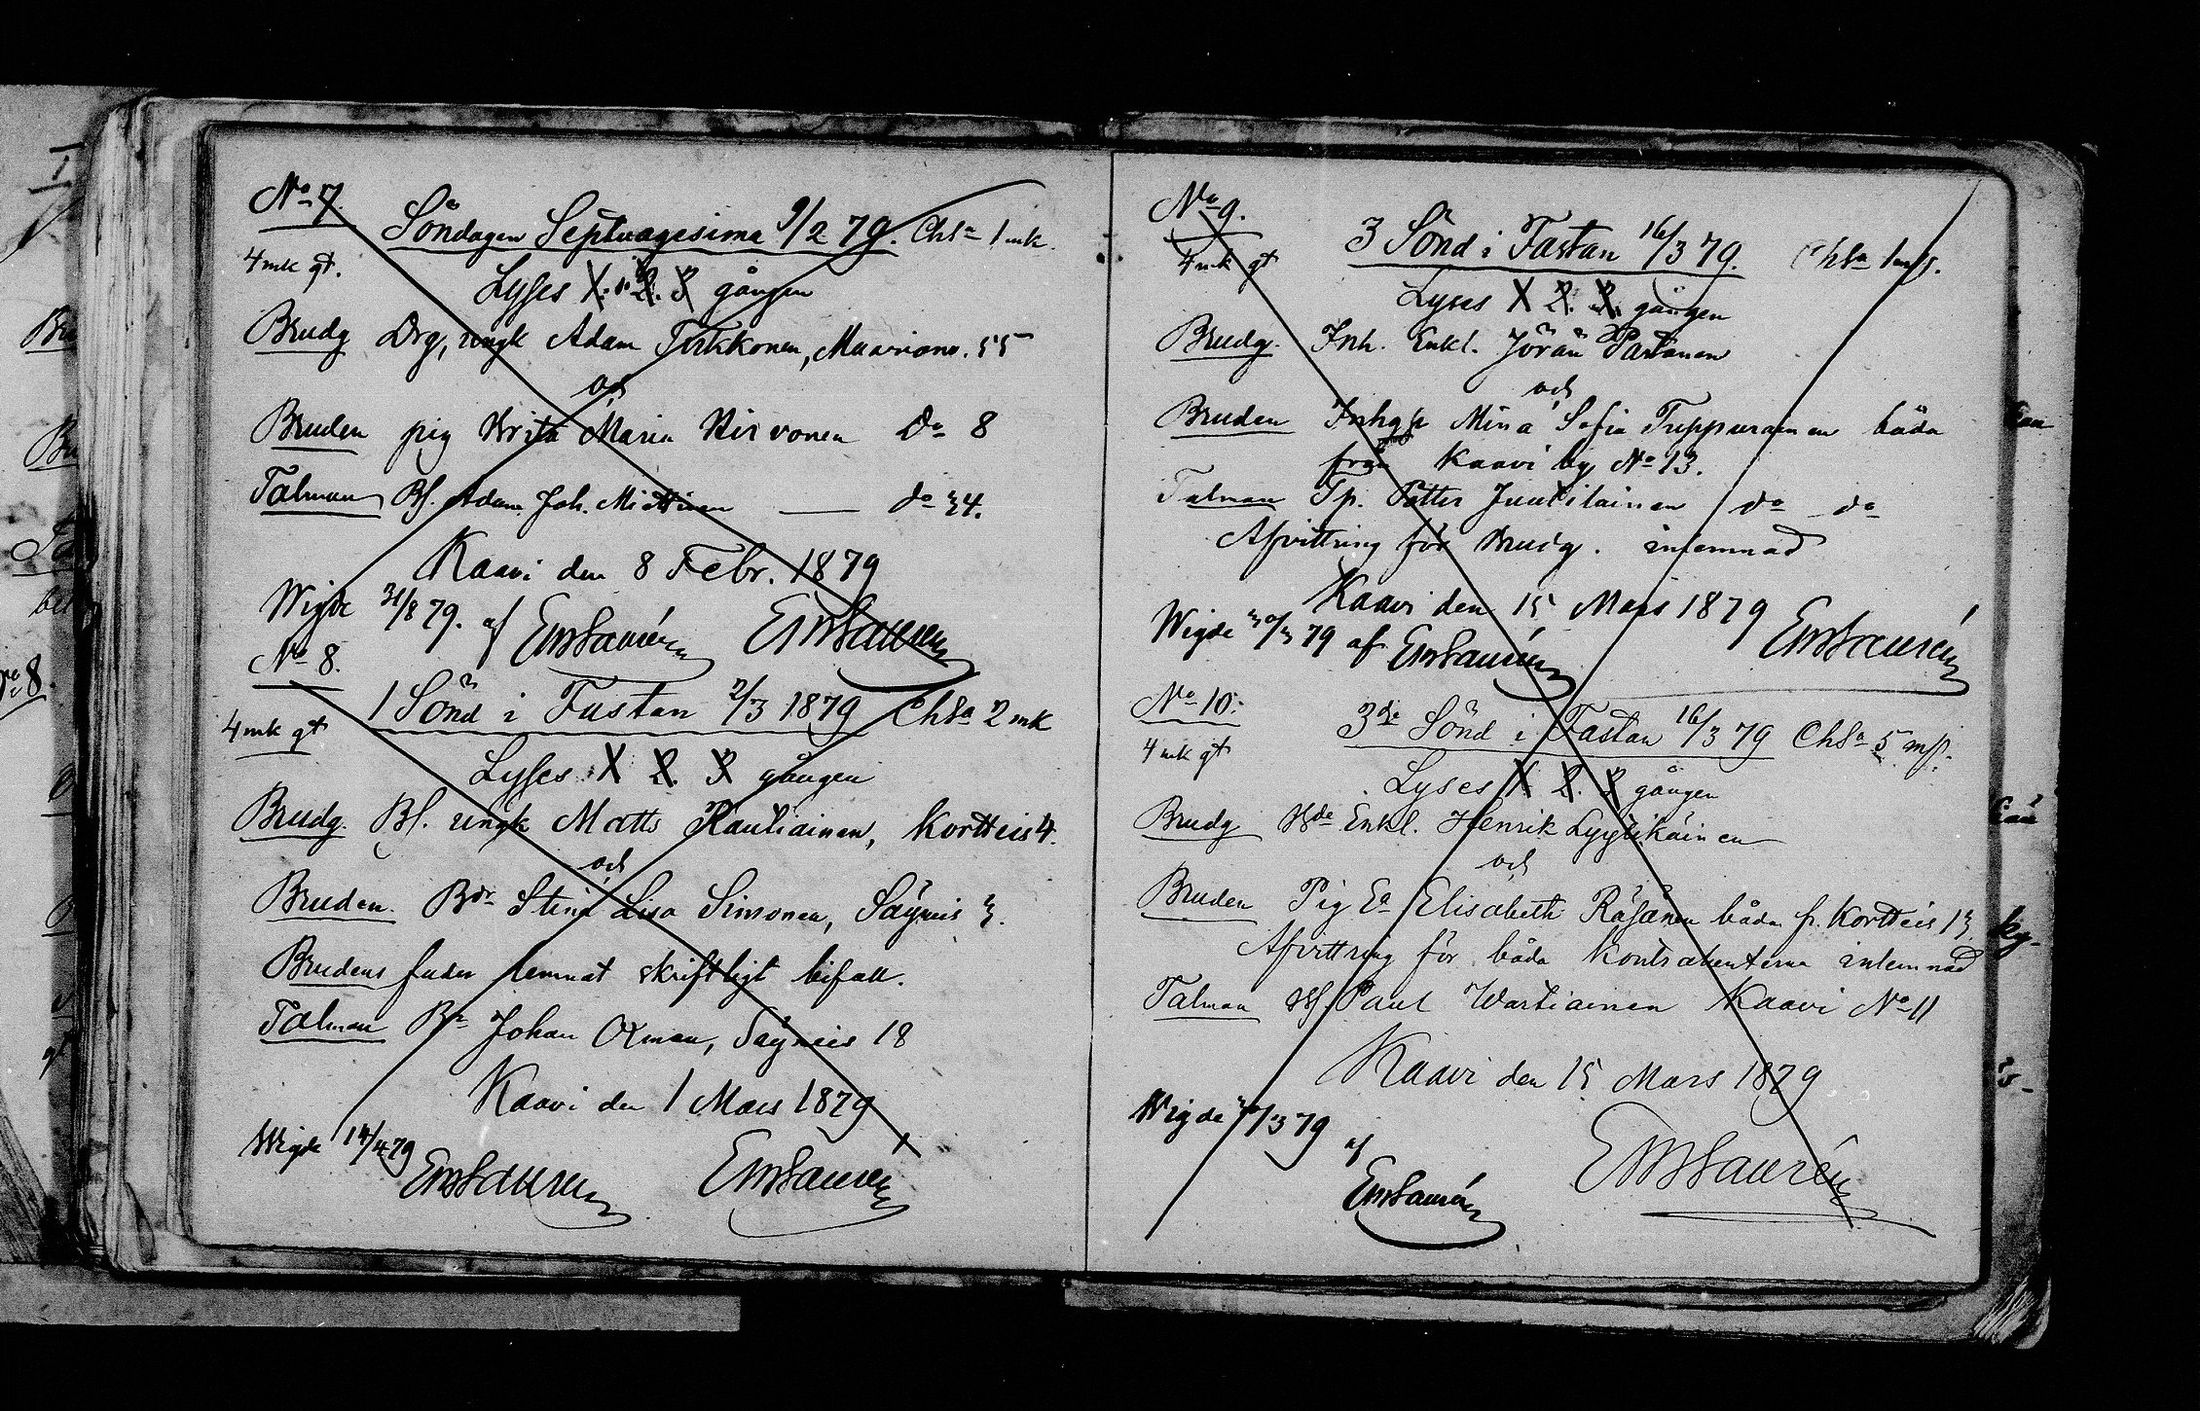 No 7.
Söndagen Septuagesima 9/2 79. Chsa 1 mk.
4 mk gt.
Lyses 1. 2. 3 gången
Brudg Drg, ungk Adam Tirkkonen, Maarianv. 55
och
Bruden pig Brita Maria Hirvonen do 8
Talman Bf. Adam Joh. Miettinen — do 34.
Kaavi den 8 Febr. 1879
Wigde 31/8 79. af EmSaurén EmSaurén
No 8.
1 Sönd i Fastan 2/3 1879 Chsa 2 mk
4 mk gt
Lyses 1 2. 3 gången
Brudg. Bf. ungk Matts Rautiainen, Kortteis 4.
och
Bruden. Bdr Stina Lisa Simonen, Säyneis 3.
Brudens fader lemnat skriftligt bifall.
Talman Bn Johan Oxman, Säyneis 18
Kaavi den 1 Mars 1879
Wigde 14/4 79 EmSaurén EmSaurén
No 9.
3 Sönd i Fastan 16/3 79. Chsa 1 mk.
4 mk gt
Lyses 1 2. 3. gången
Brudg. Inh. Enkl. Jöran Partanen
och
Bruden Inhgp Mina Sofia Tuppurainen båda
från Kaavi by No 13.
Talman Tp. Petter Juutilainen do do
Afvittring för Brudg. inlemnad
Kaavi den 15 Mars 1879
Wigde 30/3 79 af EmSaurén EmSaurén
No 10.
3de Sönd i Fastan 16/3 79 Chsa 5 mk.
4 mk gt
Lyses 1. 2. 3 gången
Brudg Bde Enkl. Henrik Lyytikäinen
och
Bruden Pig Ea Elisabeth Räsänen båda fr. Kortteis 13
Afvittring för båda Kontrahenterna inlemnad
Talman Bf. Paul Wartiainen Kaavi No 11
Kaavi den 15 Mars 1879
Wigde 30/3 79
af
EmSaurén EmSaurén